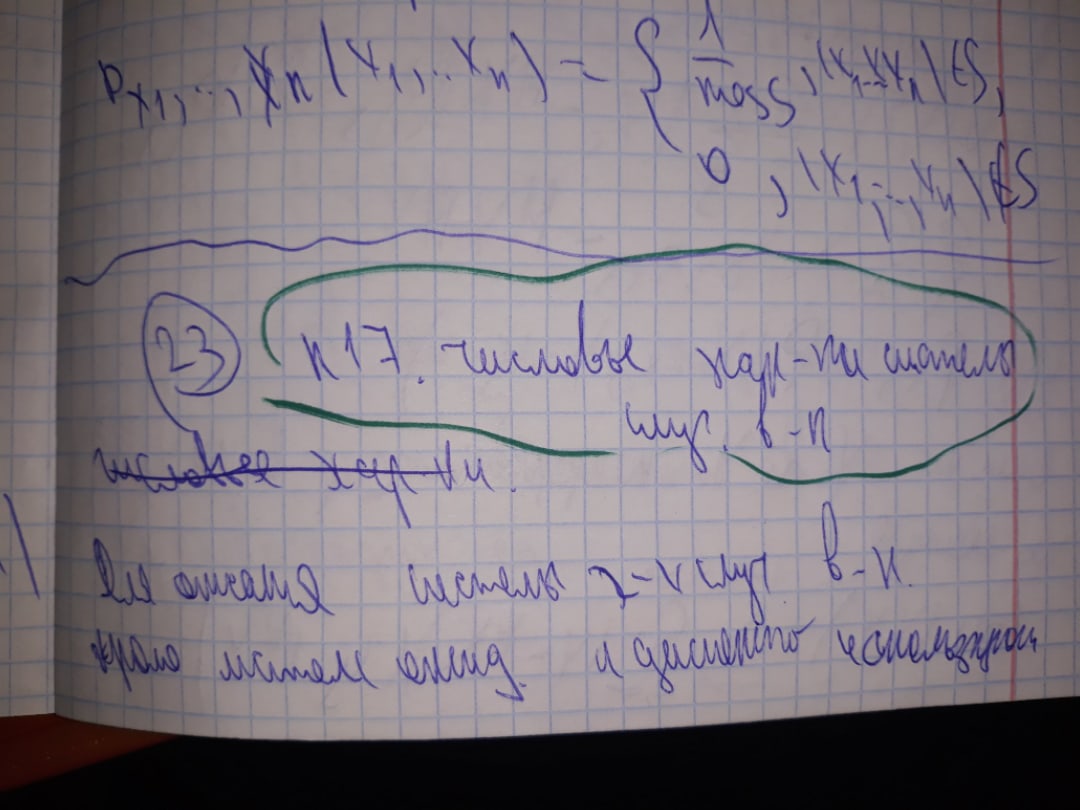 P x₁,..,xₙ (x₁,..xₙ) = { 1/mes S, (x₁,..,xₙ) ∈ S,
0, (x₁,..,xₙ) ∉ S
23 п 17. числовые хар-ки системы
случ. в-н
числовые хар-ки.
Для описания системы 2-х случ. в-н.
кроме матем ожид. и дисперсию использую